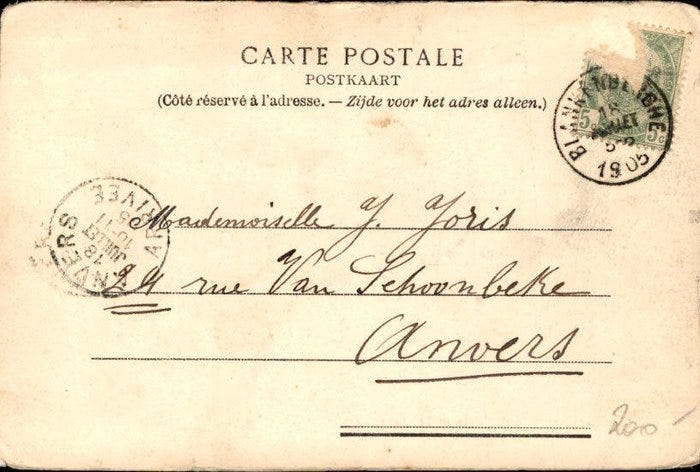 CARTE POSTALE
POSTKAART
(Côté réservé à l'adresse. — Zijde voor het adres alleen.)
5c 5c
BLANKENBERGHE
JUILLET
1905
ANVERS
ARRIVÉE
18
JUILLET
10-11
Mademoiselle J. Joris
24 rue Van Schoonbeke
Anvers
200